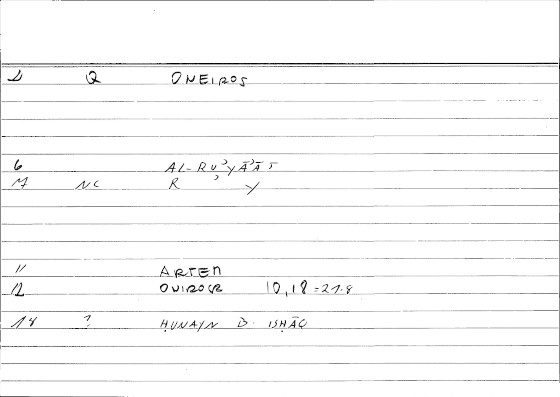 D Q ONEIROS
6 AL-RUʾYĀʾĀT
M NC R ʾ Y
11 ARTEM
12 OUIROCR 10,18=21.8
18 ? ḤUNAYN B. ISḤĀQ